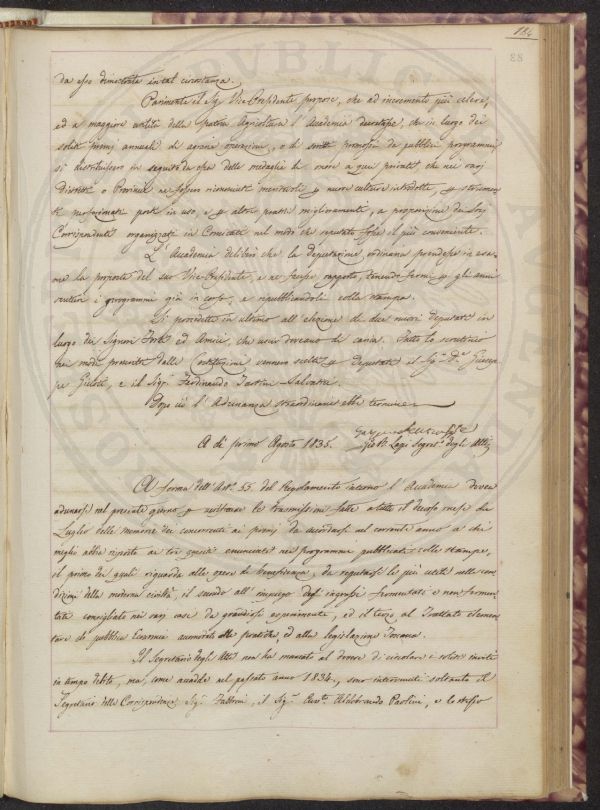 184
88
da essa dimostrata in tal circostanza.
Parimente il Sig. Vice Presidente propose, che ad incremento più celere,
ed a maggiore utilità della patria Agricoltura l'Accademia decretasse, che in luogo dei
soliti premj annuali di agrarie operazioni, o di scritti promossi da pubblici programmi
si distribuissero in seguito da essa delle medaglie di onore a quei privati che nei varj
Distretti o Provincie ne fossero riconosciuti meritevoli p nuove culture introdotte, p strumen
ti perfezionati posti in uso, e p altre pratiche miglioramenti, a proposizione dei Socj
Corrispondenti organizzati in Comitati nel modo che reputato fosse il più conveniente.
L'Accademia deliberò che la deputazione ordinaria prendesse in esa=
me la proposta del suo Vice Presidente, e ne facesse rapporto, tenendo fermi p gli anni
venturi i programmi già in corso, e ripubblicandoli colla stampa.
Si procedette in ultimo all'elezione di due nuovi deputati in
luogo dei Signori Forti ed Amici, che uscir doveano di carica. Fatto lo scrutinio
nei modi prescritti dalle Costituzioni vennero eletti p deputati il Sig. D. Giusep
pe Giusti, e il Sig. Ferdinando Tartini Salvatici.
Dopo ciò l'Adunanza straordinaria ebbe termine
A dì primo Agosto 1835. Segret. degli Atti
A forma dell'Art. 55. del Regolamento interno l'Accademia dovea
adunarsi nel presente giorno p verificare le trasmissioni fatte a tutto il decorso mese di
Luglio delle memorie dei concorrenti ai premj da accordarsi nel corrente anno a chi
meglio abbia risposto ai tre quesiti enunciati nei programmi pubblicati colle stampe,
il primo dei quali riguarda alle opere di beneficenza, da reputarsi le più utili nelle con
dizioni della moderna civiltà, il secondo all'impiego degl'ingrassi fermentati e non fermen
tati consigliato nei varj casi da grandiosi esperimenti, ed il terzo al Trattato elemen
tare di pubblica Economia alla pratica, ed alla legislazione Toscana.
Il Segretario degli Atti non ha mancato al dovere di circolare i soliti inviti
in tempo debito, ma, come accadde nel passato anno 1834., sono intervenuti soltanto il
Segretario delle Corrispondenze Sig. Tabbrini, il Sig. Cav. Ildebrando Paolini, e lo stesso